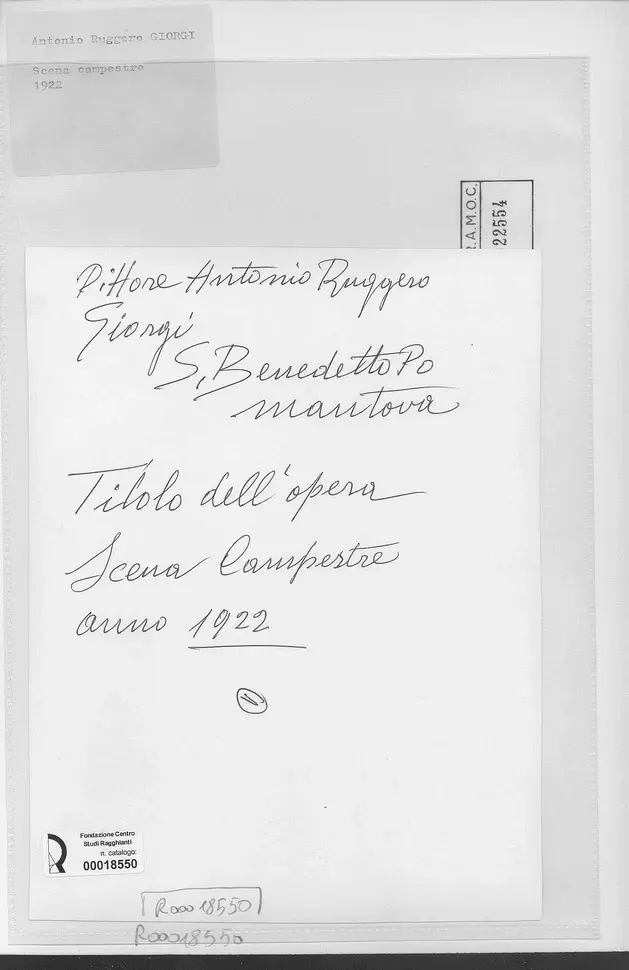 Antonio Ruggero GIORGI
Scena campestre
1922
R.A.M.O.C.
22554
Pittore Antonio Ruggero
Giorgi
S. Benedetto Po
Mantova
Titolo dell'opera
Scena Campestre
anno 1922
V
Fondazione Centro
Studi Ragghianti
n. catalogo:
00018550
R00018550
R00018550